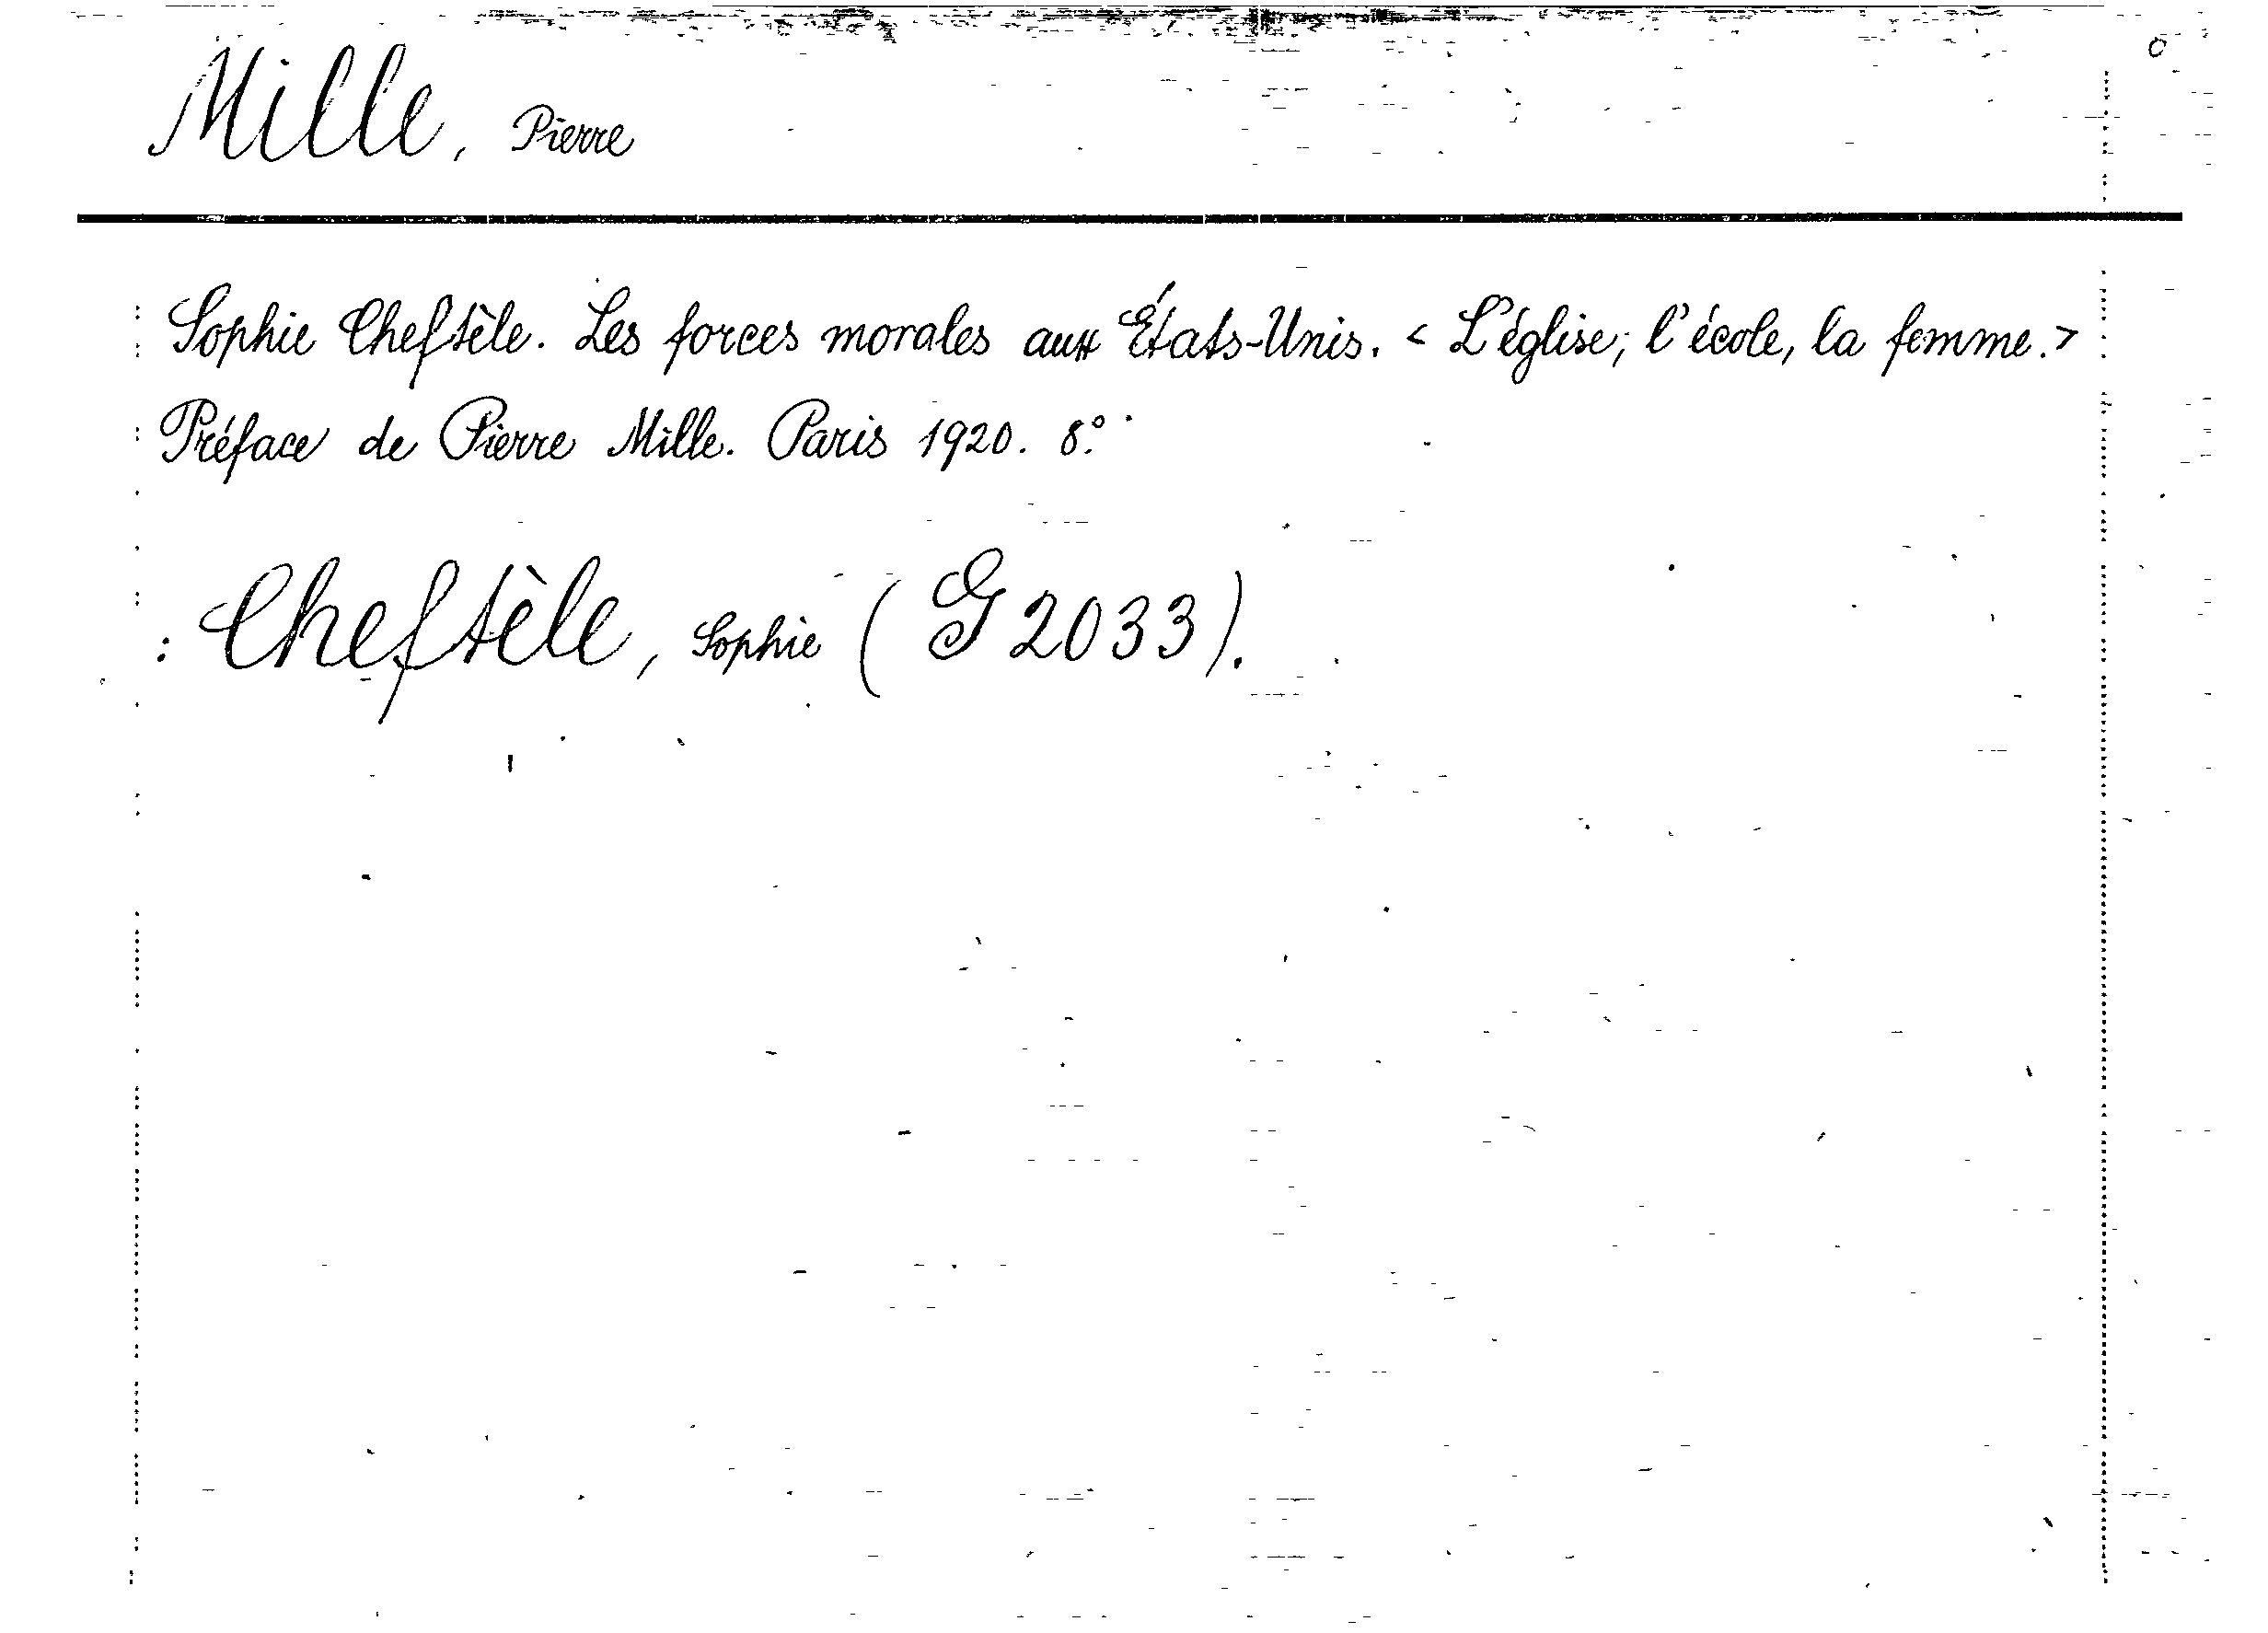 Mille, Pierre
Sophie Cheftèle. Les forces morales aux États-Unis. < L'église, l'école, la femme. >
Préface de Pierre Mille. Paris 1920. 8º.
Cheftèle, Sophie (G 2033).